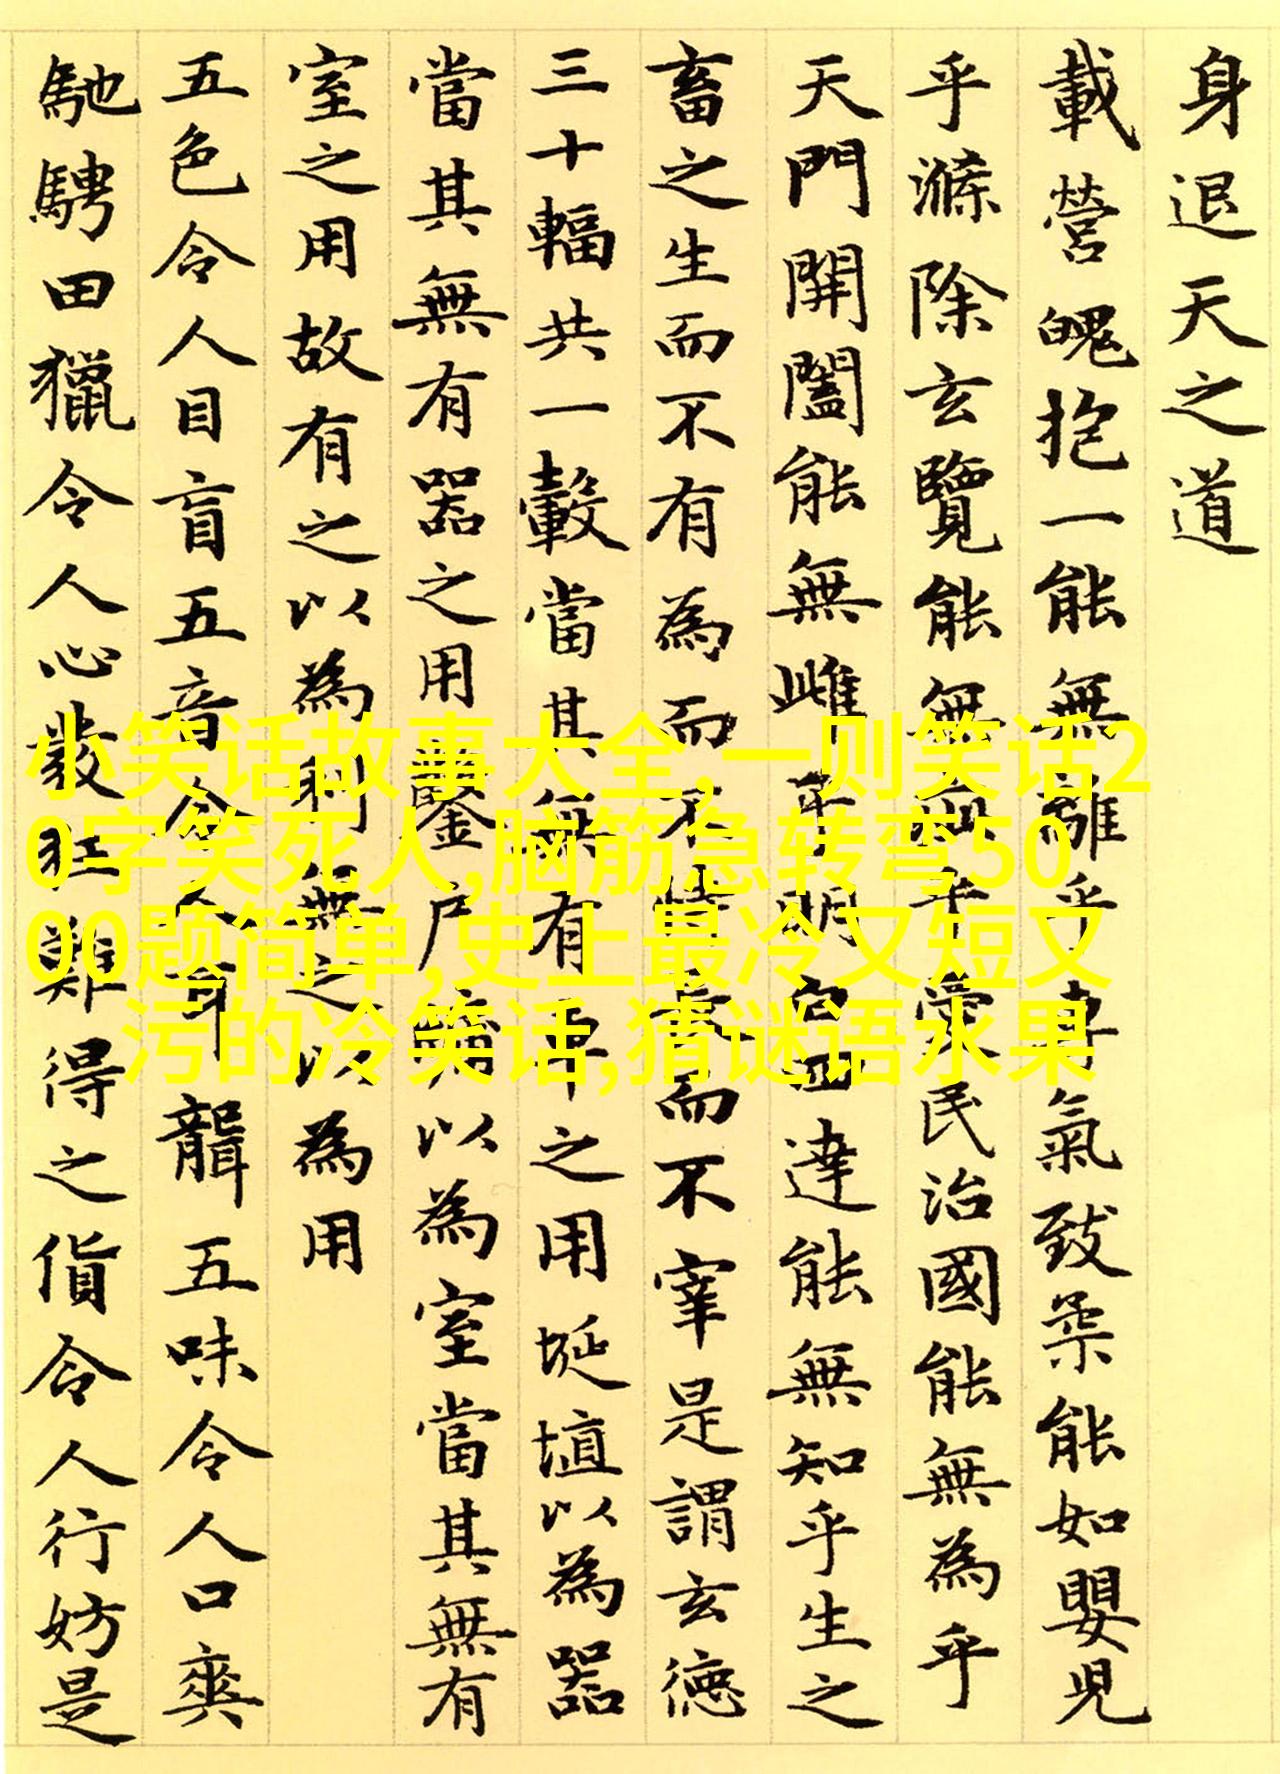 身退天之道
載營魄抱一能無離乎專氣致柔能如嬰兒
乎滌除玄覽能無疵乎愛民治國能無為乎
天門開闔能無雌乎明白四達能無知乎生之
畜之生而不有為而不恃長而不宰是謂玄德
三十輻共一轂當其無有車之用埏埴以為器
當其無有器之用鑿戶牖以為室當其無有
室之用故有之以為利無之以為用
五色令人目盲五音令人耳聾五味令人口爽
馳騁田獵令人心發狂難得之貨令人行妨是
小笑话故事大全,一则笑话2
0字笑死人,脑筋急转弯50
00题简单,史上最冷又短又
污的冷笑话,猜谜语水果